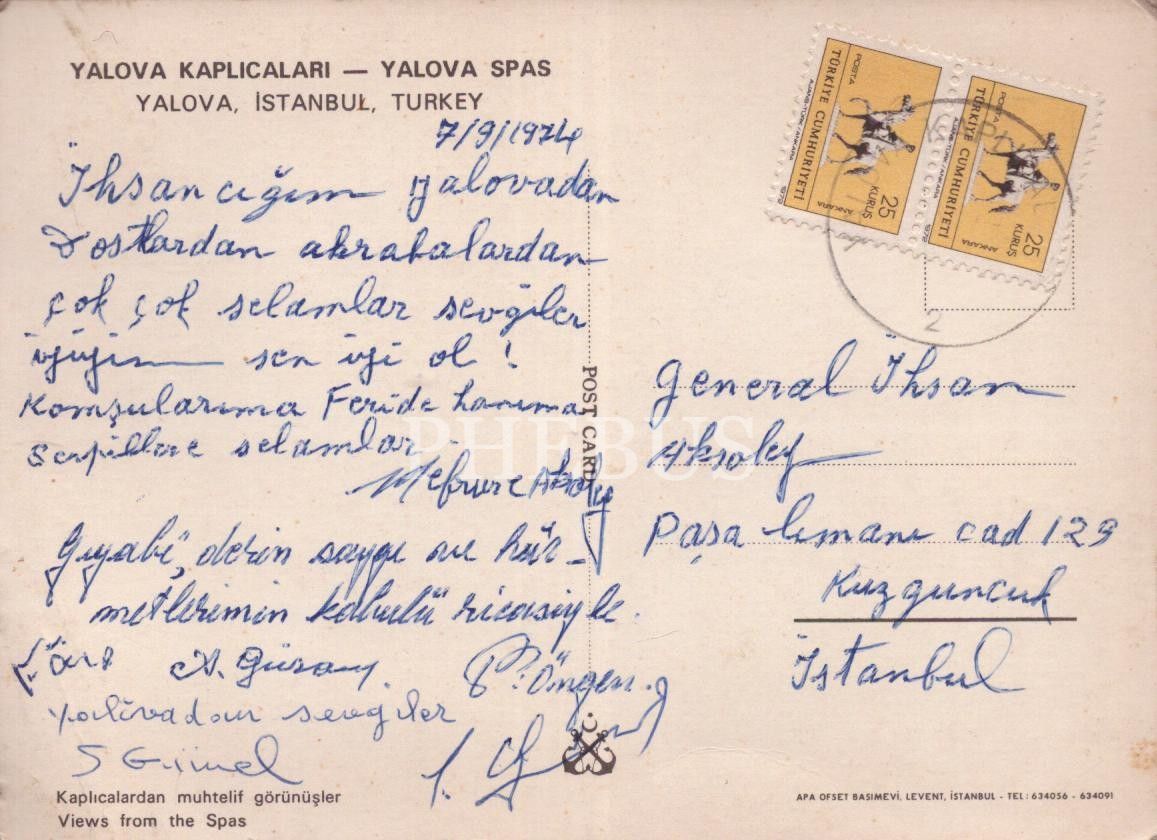 YALOVA KAPLICALARI — YALOVA SPAS
YALOVA, İSTANBUL, TURKEY
7/9/1974
İhsancığım yalovadan
Dostlardan akrabalardan
çok çok selamlar sevgiler
iyiyim sen iyi ol !
Komşularıma Feride hanıma
selamlar
Mefrure Aksoley
Gıyabi, derin saygı ve hür-
metlerimin kabulü ricasiyle.
A. Güray
Öngen
yalovadan sevgiler
S Günel
Kaplıcalardan muhtelif görünüşler
Views from the Spas
POST CARD
PHEBUS
POSTA
TÜRKİYE CUMHURİYETİ
AJANS-TÜRK/ANKARA
ANKARA
1972
25
KURUŞ
POSTA
TÜRKİYE CUMHURİYETİ
AJANS-TÜRK/ANKARA
ANKARA
1972
25
KURUŞ
2
General İhsan
Aksoley
Paşa limanı cad 129
Kuzguncuk
İstanbul
APA OFSET BASIMEVİ, LEVENT, İSTANBUL - TEL: 634056 - 634091